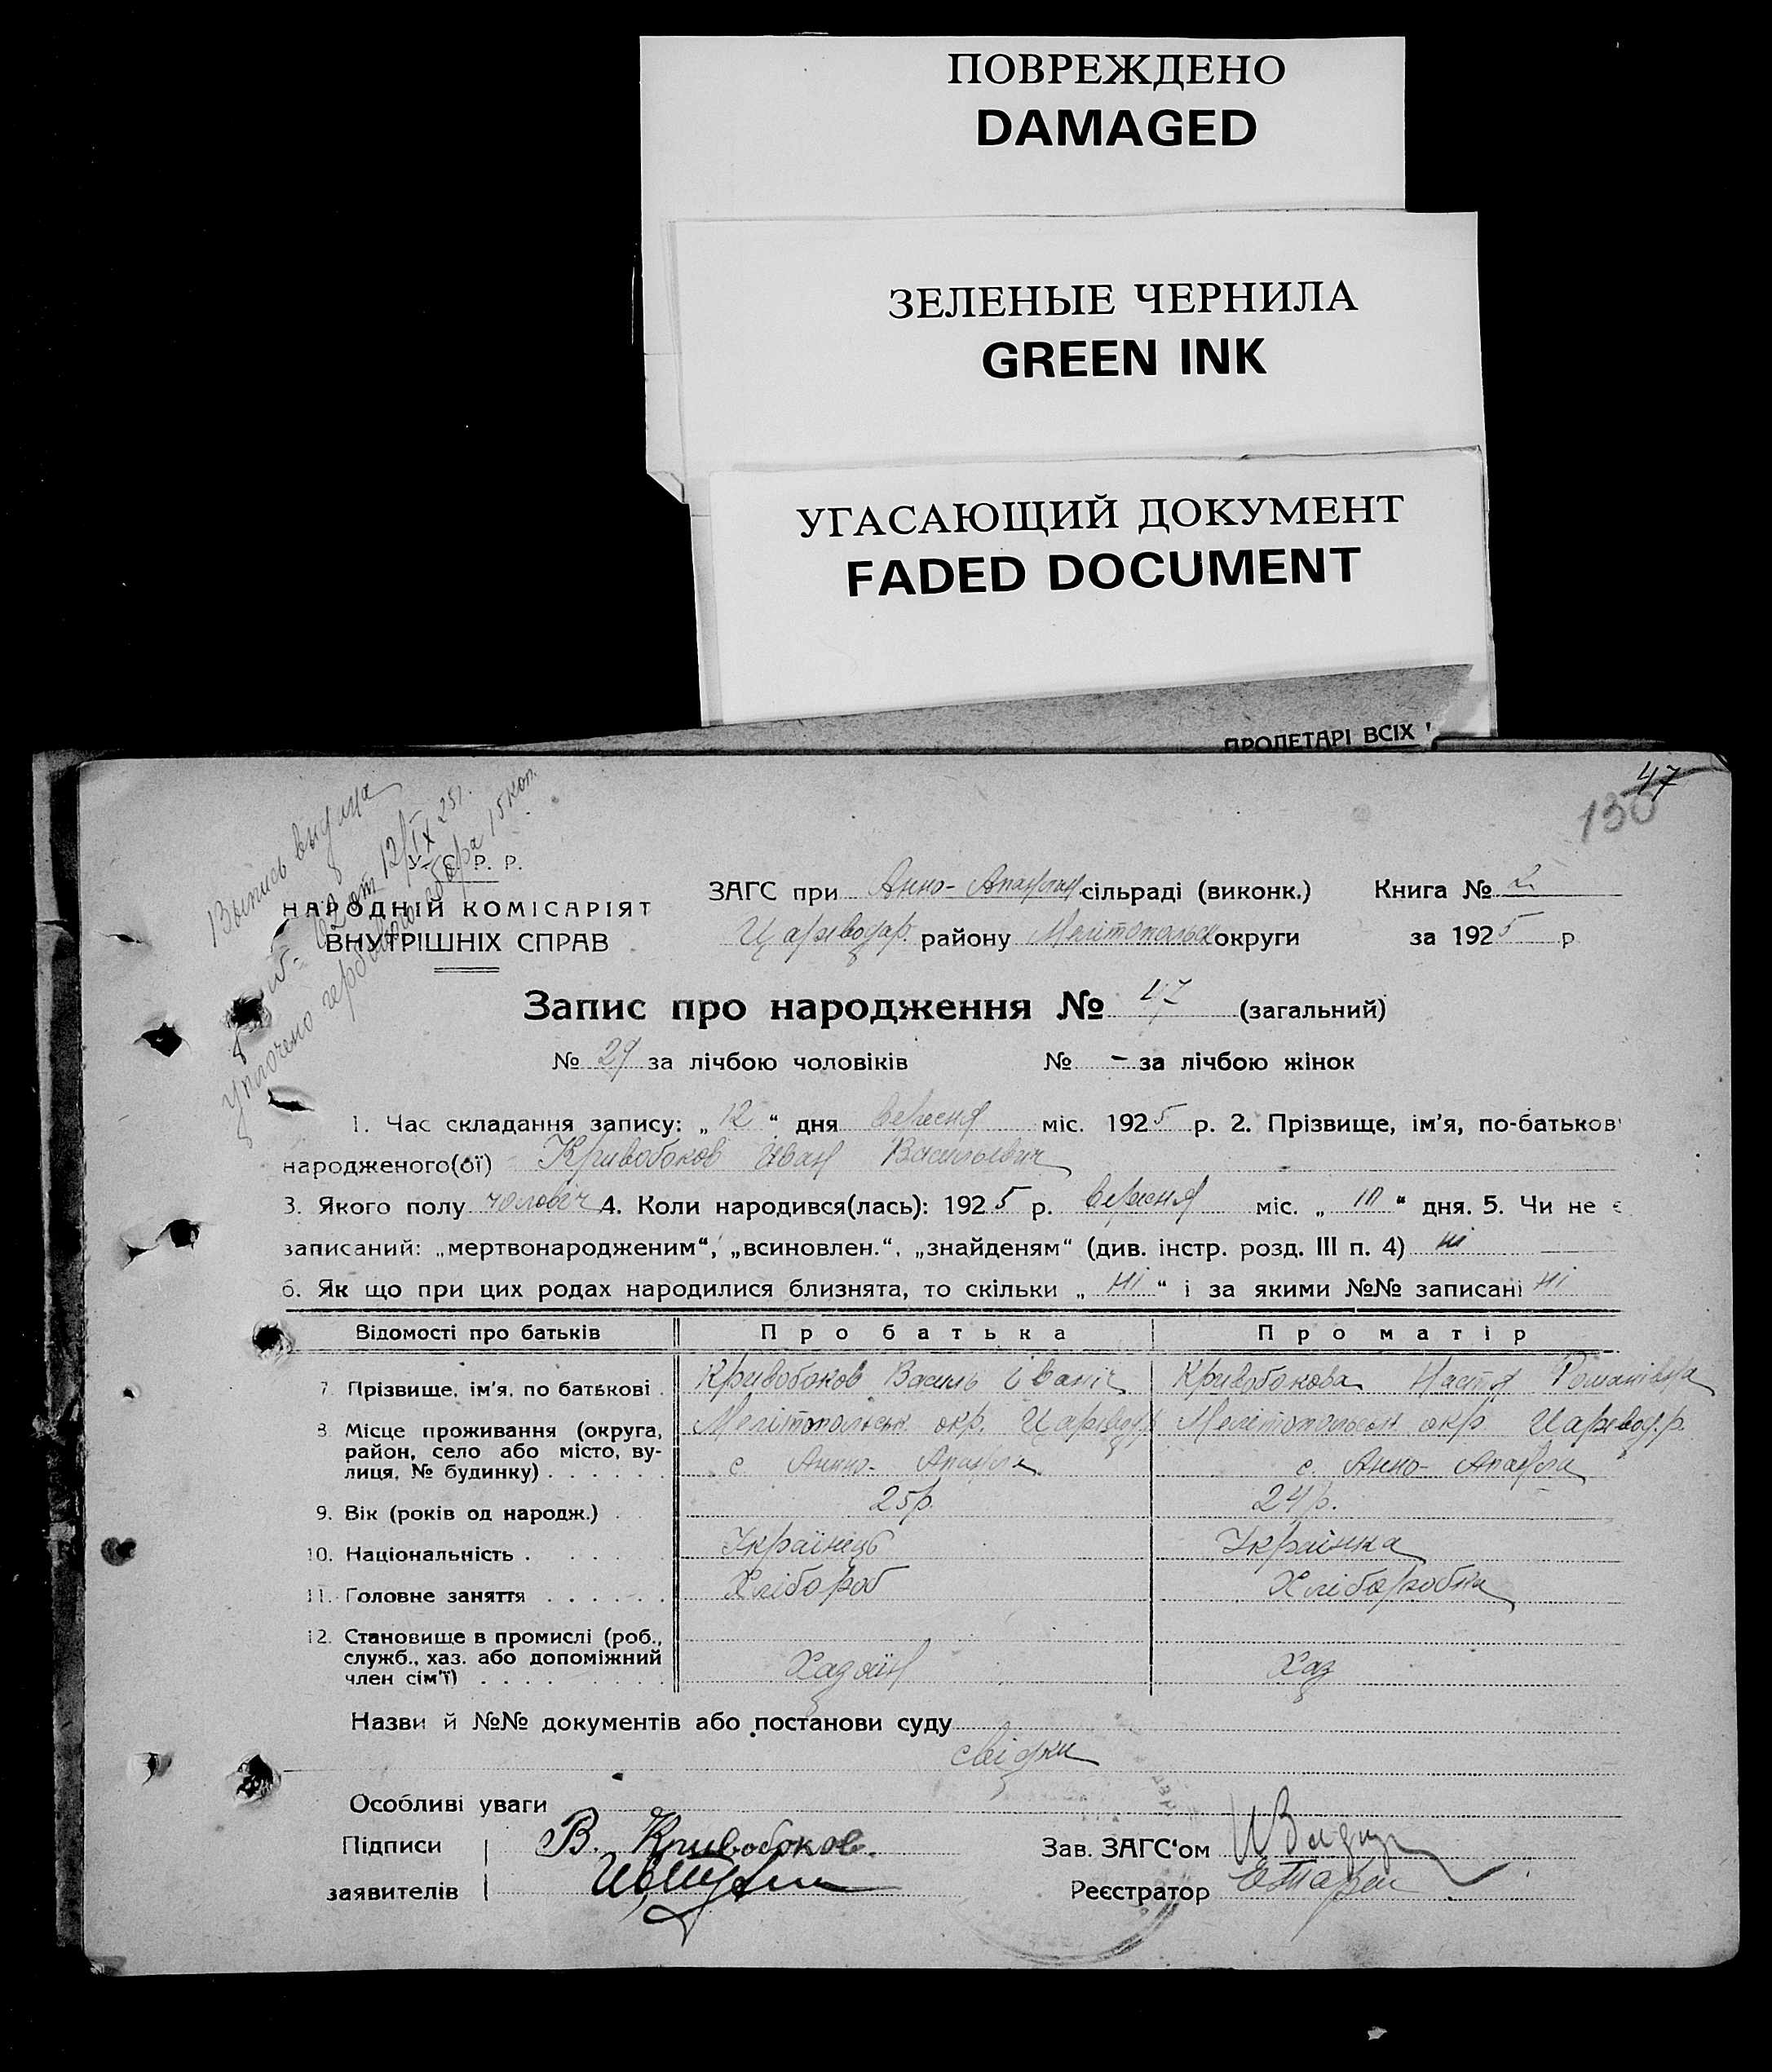 ПОВРЕЖДЕНО
DAMAGED
ЗЕЛЕНЫЕ ЧЕРНИЛА
GREEN INK
УГАСАЮЩИЙ ДОКУМЕНТ
FADED DOCUMENT
ПРОЛЕТАРІ ВСІХ
47
130
Выпись выдана
62 от 12/IX 25г.
уплочено гербового сбора 15 коп.
У. С. Р. Р.
НАРОДНІЙ КОМІСАРІЯТ
ВНУТРІШНІХ СПРАВ
ЗАГС при Анно- сільраді (виконк.) Книга № 2
Цареводар. району Мелітопольск округи за 1925 р
Запис про народження № 47 (загальний)
№ 29 за лічбою чоловіків № – за лічбою жінок
1. Час складання запису: „ 12 “ дня вересня міс. 1925 р. 2. Прізвище, ім'я, по-батьков
народженого(ої) Кривобоков Иван Васильевич
3. Якого полу чоловіч 4. Коли народився(лась): 1925 р. вересня міс. „ 10 “ дня. 5. Чи не є
записаний: „мертвонародженим“, „всиновлен.“, „знайденям“ (див. інстр. розд. III п. 4) ні
6. Як що при цих родах народилися близнята, то скільки „ ні “ і за якими №№ записані ні
Відомості про батьків Про батька Про матір
7. Прізвище, ім'я, по батькові . Кривобоков Василь Іваніч Кривобокова Настя Романівна
8. Місце проживання (округа, Мелітопольськ окр. Царевод.р Мелітопольськ окр. Царевод.р.
район, село або місто, ву-
лиця, № будинку) . . . . . . с. Анно- с. Анно-
9. Вік (років од народж.) . 25р. 24р.
10. Національність . . . . . Українець Українка
11. Головне заняття . . . . . . Хлібороб Хліборобка
12. Становище в промислі (роб.,
служб., хаз. або допоміжний
член сім'ї) . . . . . . . . Хазяїн Хаз
Назви й №№ документів або постанови суду
свідки
Особливі уваги
Підписи В. Кривобоков. Зав. ЗАГС'ом
заявителів Реєстратор